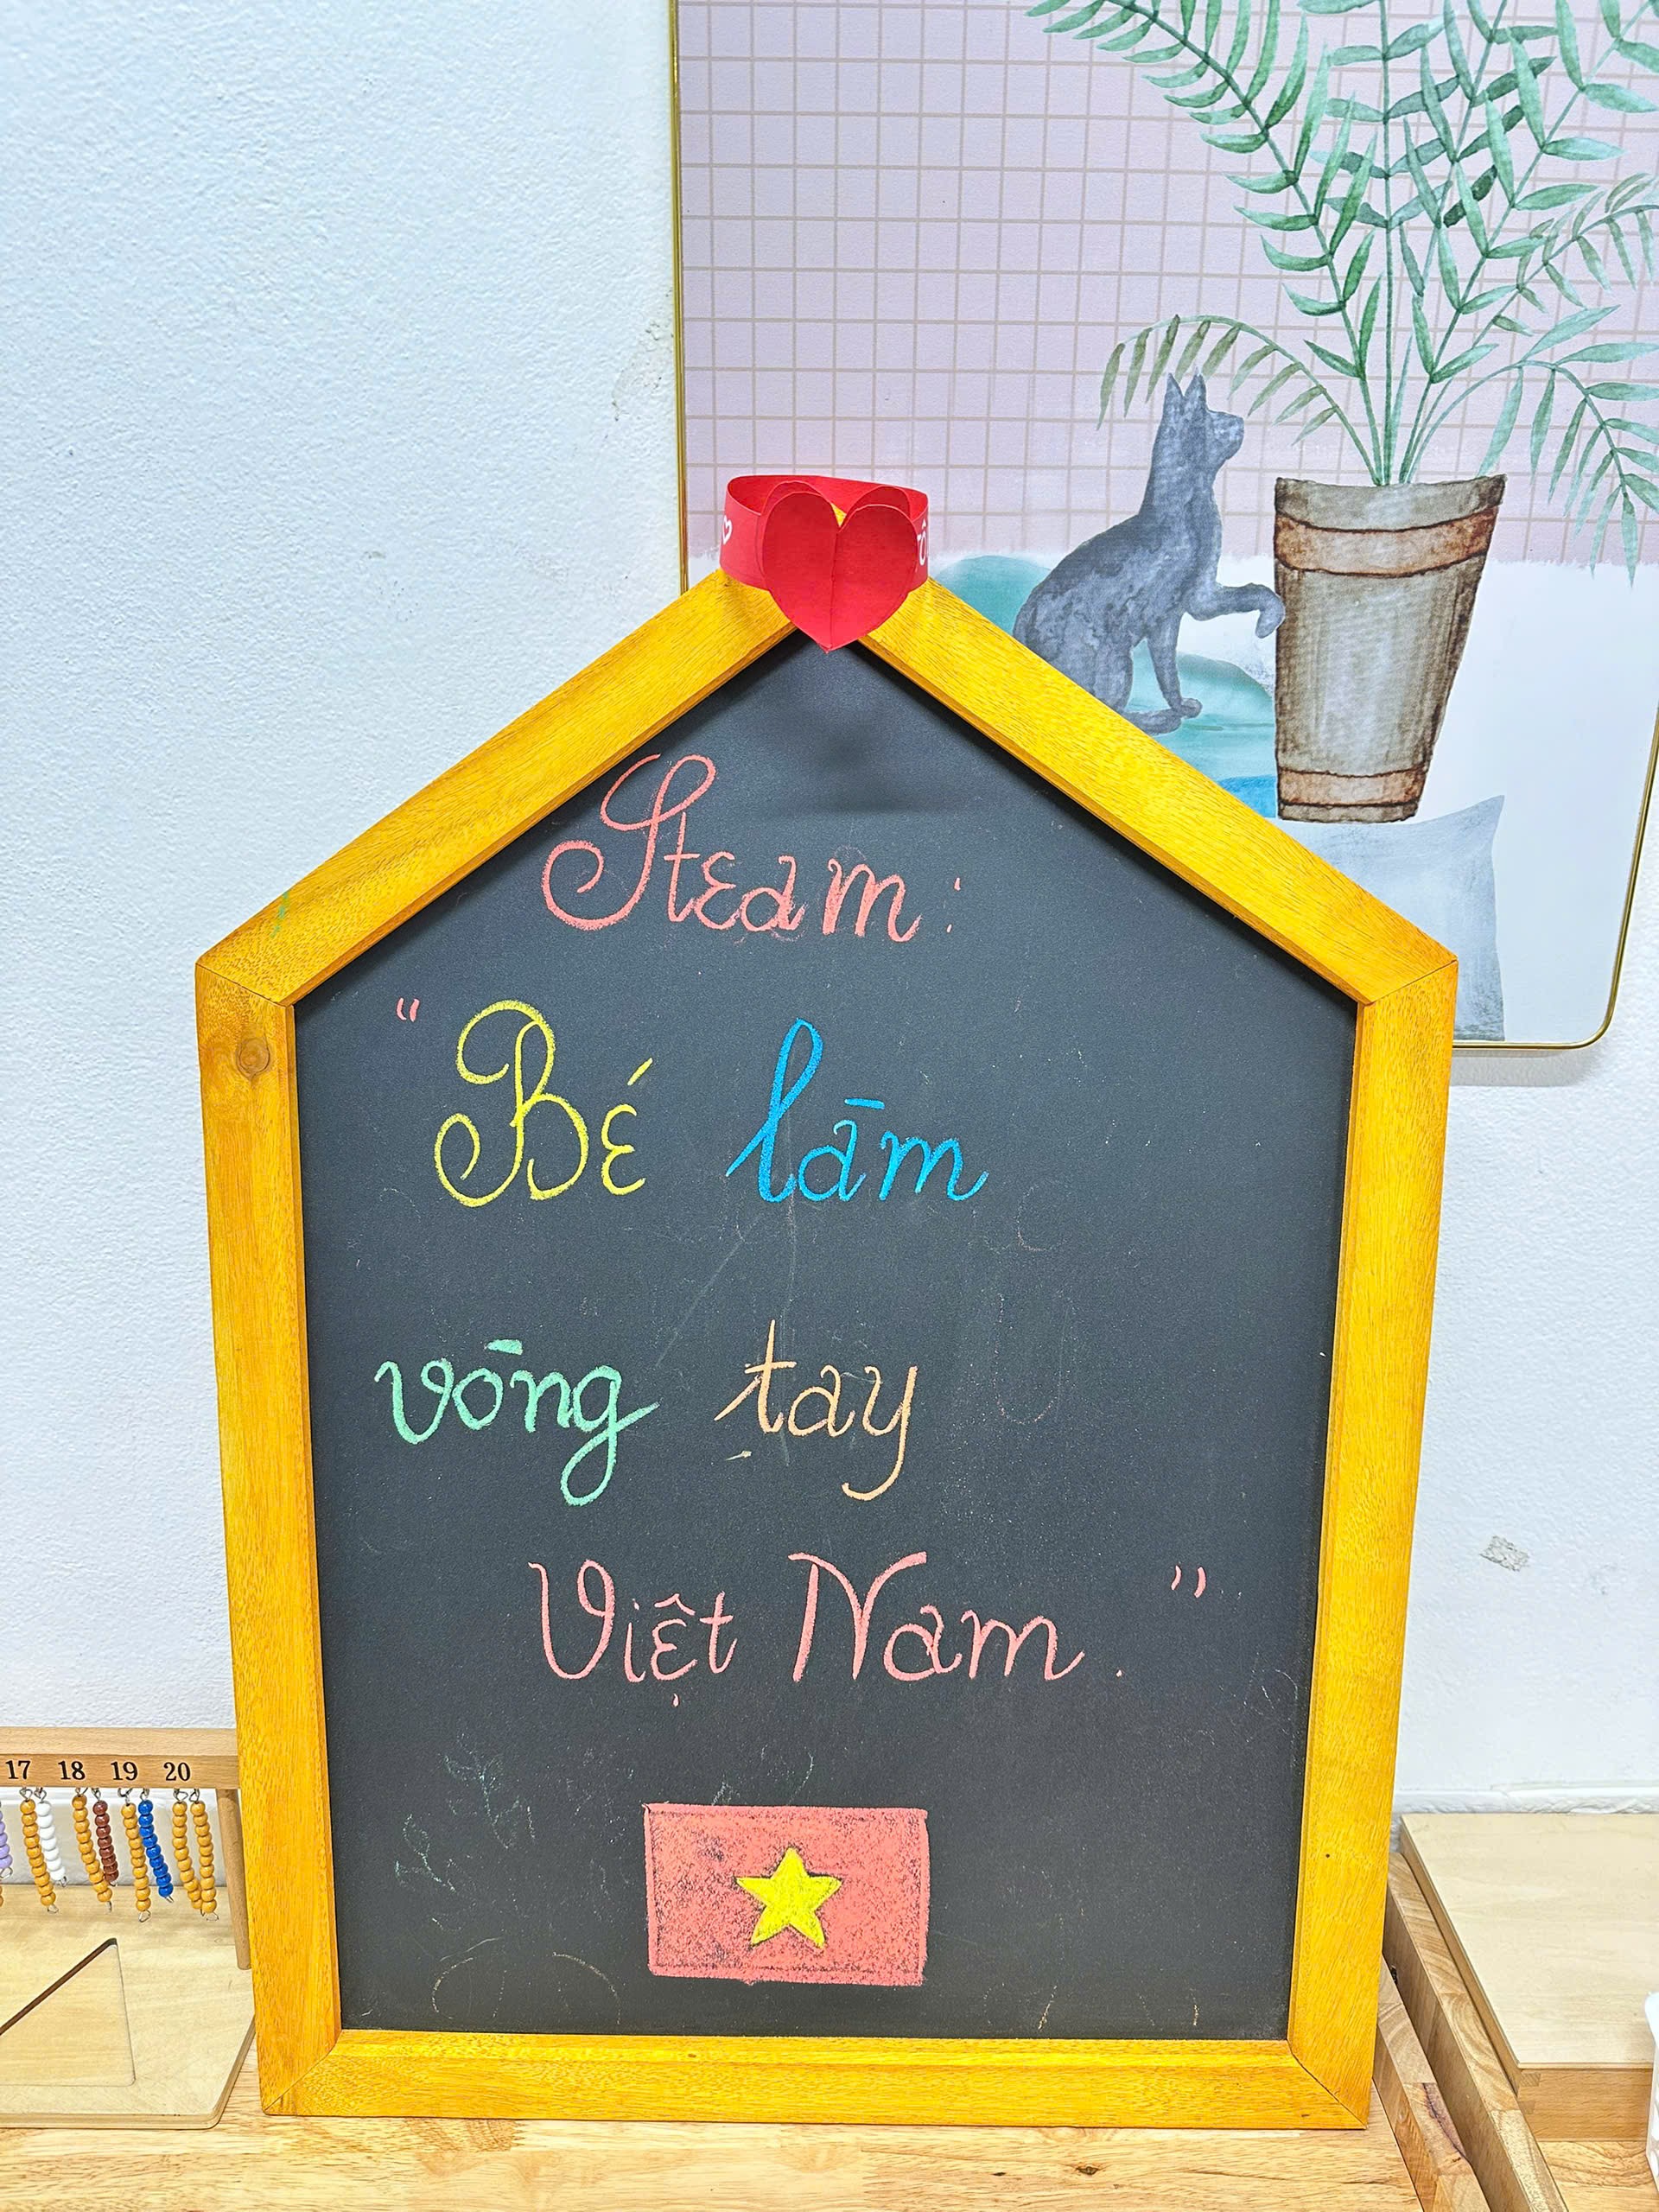 Steam:
"Bé làm
vòng tay
Việt Nam."
17 18 19 20